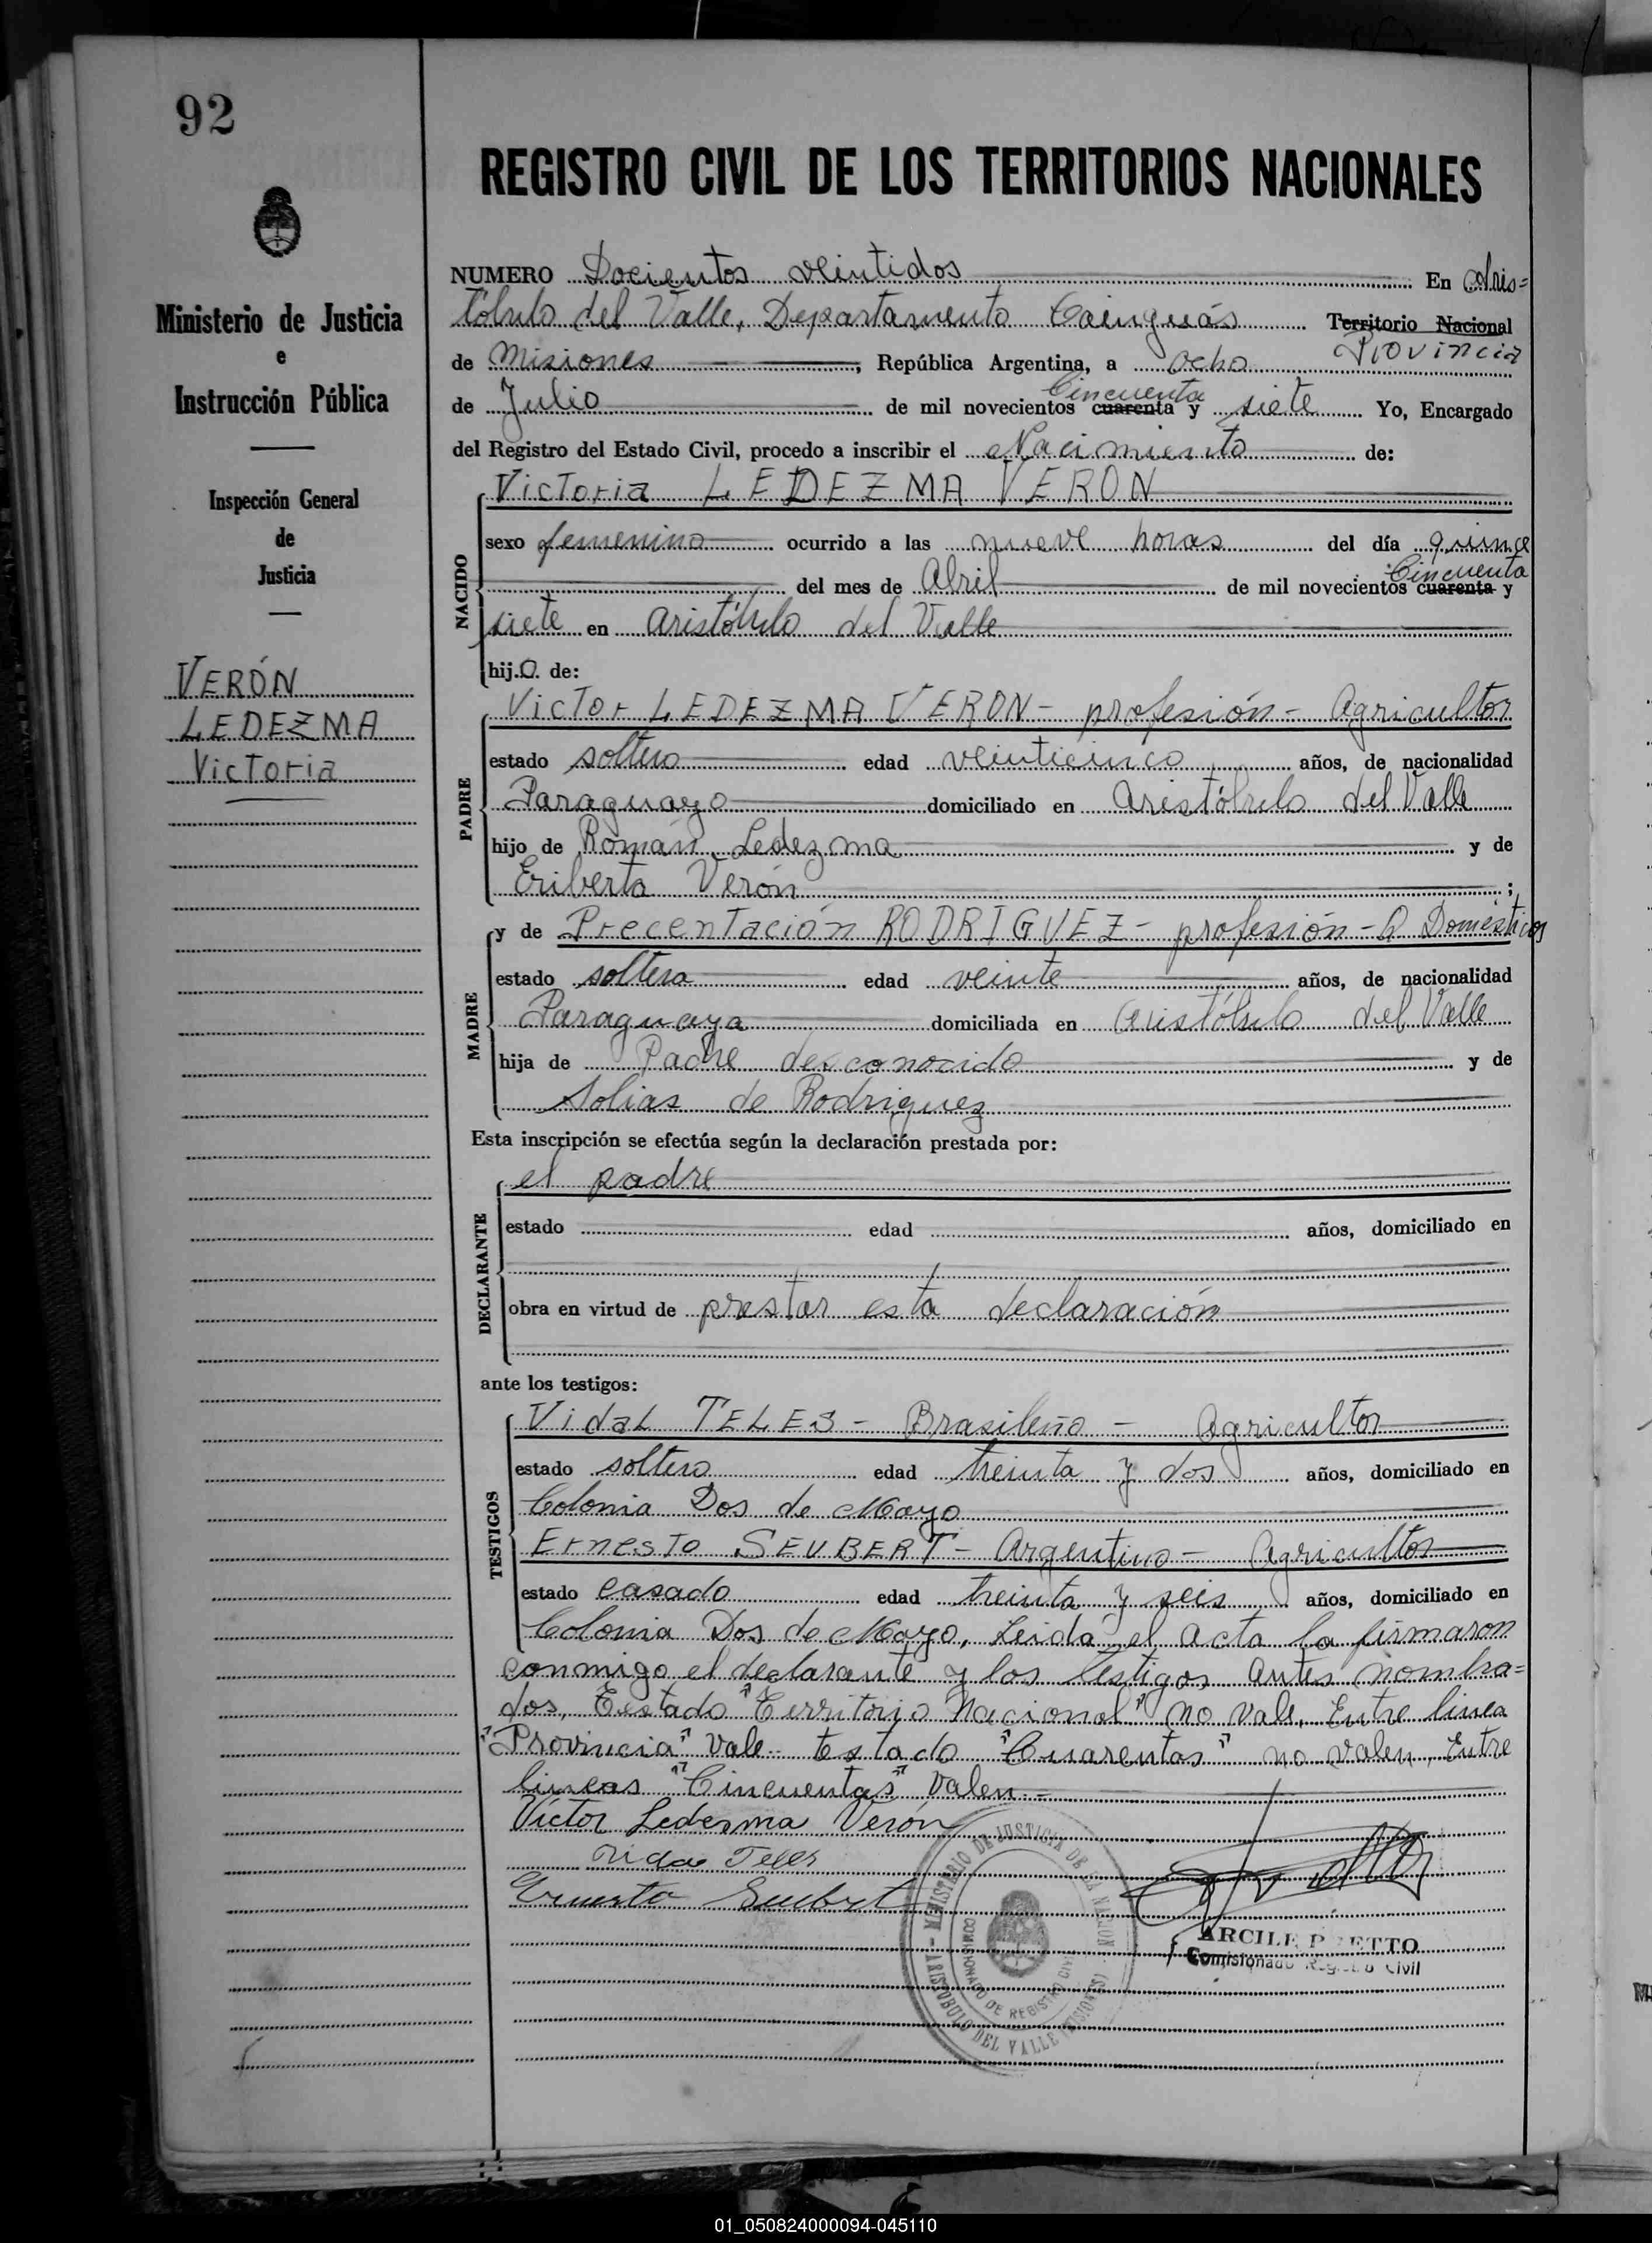 92
REGISTRO CIVIL DE LOS TERRITORIOS NACIONALES
Ministerio de Justicia
e
Instrucción Pública
Inspección General
de
Justicia
VERÓN
LEDEZMA
Victoria
NUMERO Docientos veintidos En Aris=
tóbulo del Valle, Departamento Cainguás Territorio Nacional
Provincia
de Misiones, República Argentina, a ocho
de Julio de mil novecientos cuarenta y siete Yo, Encargado
Cincuenta
del Registro del Estado Civil, procedo a inscribir el Nacimiento de:
Victoria LEDEZMA VERON
NACIDO
sexo femenino ocurrido a las nueve horas del día quince
Cincuenta
del mes de Abril de mil novecientos cuarenta y
siete en Aristóbulo del Valle
hij.a de:
Victor LEDEZMA VERON - profesión - Agricultor
PADRE
estado soltero edad veinticinco años, de nacionalidad
Paraguayo domiciliado en Aristóbulo del Valle
hijo de Román Ledezma y de
Eriberta Verón;
y de Precentación RODRIGUEZ - profesión - Q. Domésticos
MADRE
estado soltera edad veinte años, de nacionalidad
Paraguaya domiciliada en Aristóbulo del Valle
hija de Padre desconocido y de
Solias de Rodriguez
Esta inscripción se efectúa según la declaración prestada por:
el padre
DECLARANTE
estado edad años, domiciliado en
obra en virtud de prestar esta declaración
ante los testigos:
Vidal TELES - Brasileño - Agricultor
TESTIGOS
estado soltero edad treinta y dos años, domiciliado en
Colonia Dos de Mayo
Ernesto SEUBERT - Argentino - Agricultor
estado casado edad treinta y seis años, domiciliado en
Colonia Dos de Mayo, Leida el acta la firmaron
conmigo el declarante y los testigos antes nombra=
dos, Testado "Territorio Nacional" no vale, Entre linea
"Provincia" vale. testado "Cuarentas" no valen, Entre
lineas "Cincuentas" valen.=
Víctor Ledesma Verón
Vidal Teles
Ernesto Seubert
MINISTERIO DE JUSTICIA DE LA NACION - ARISTOBULO DEL VALLE (MISIONES)
COMISIONADO DE REGISTRO CIVIL
Comisionado Registro Civil
01_050824000094-045110